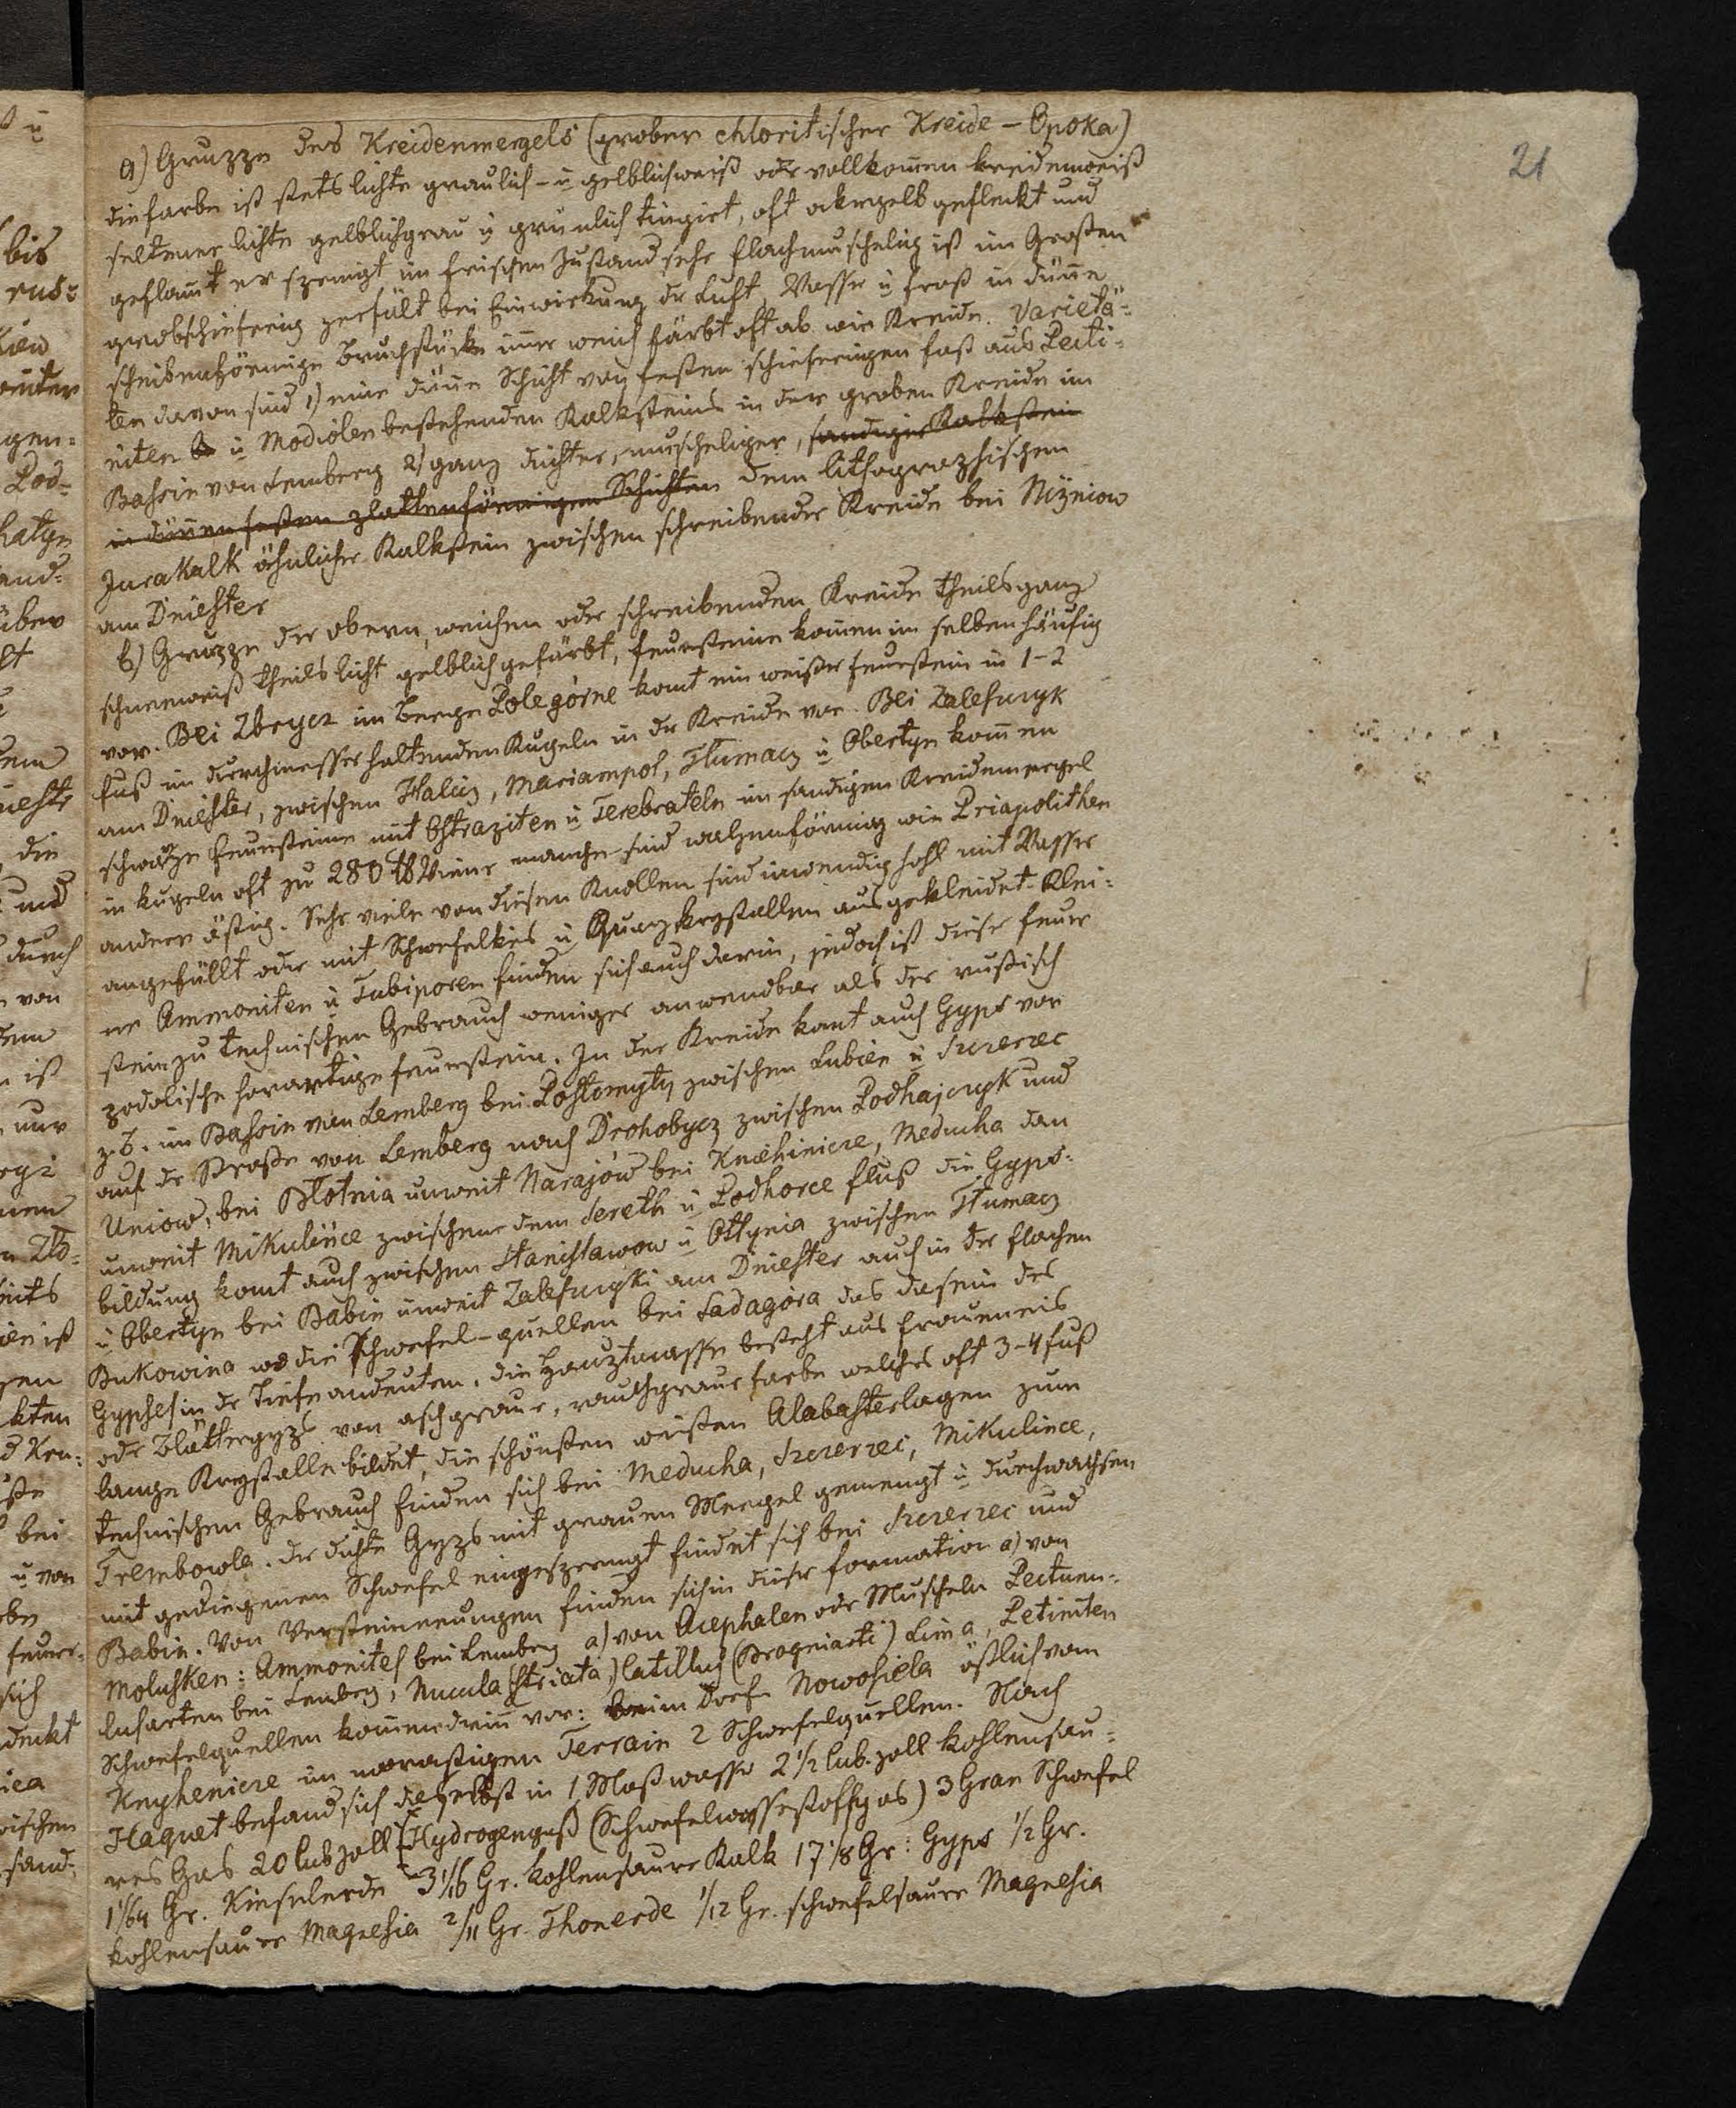 21
a) Gruppe des Kreidenmergels (grober chloritischer Kreide – Opoka)
die farbe ist stets lichte graulich- u gelblichweiß oder vollkom̄en kreidenweiß
seltener lichte gelblichgrau u grünlich tingirt, oft ockergelb gefleckt und
geflam̄t er springt im frischen Zustand sehr flachmuschelig ist im Großen
grobschieferig zerfält bei Einwirkung der Luft, Wasser u frost in dün̄e
scheibenförmige Bruchstücke im̄er weich färbt oft ab wie Kreide. Varietä-
ten davon sind 1) eine dün̄e Schicht von festen schieferigen fast aus Pecti-
niten u Modiolen bestehenden Kalksteins in der groben Kreide im
Bassin von Lemberg 2) ganz dichter, muscheliger, sandiger Kalkstein
in dün̄en festen plattenförmigen Schichten dem lithographischen
Jurakalk ähnlicher Kalkstein zwischen schreibender Kreide bei Niżniow
am Dniester
b) Gruppe der obern, weichen oder schreibenden Kreide theils ganz
schneeweiß theils licht gelblich gefärbt, feuersteine kom̄en im selben häufig
vor. Bei Zbrycz im Berge Pole górne kom̄t ein weißer feuerstein in 1–2
fuß im durchmesser haltenden Kugeln in der Kreide vor. Bei Zalesczyk
am Dniester, zwischen Halicz, Mariampol, Tłumacz u Obertyn kom̄en
schwarze feuersteine mit Ostraziten u Terebrateln im sandigen Kreidemergel
in kugeln oft zu 280 ℔ Wiener manche sind walzenförmig wie Priapolithen
andere ästig. Sehr viele von diesen Knollen sind inwendig hohl mit Wasser
angefüllt oder mit Schwefelkies u Quarzkrystallen ausgekleidet. Klei-
ne Ammoniten u Tubiporen finden sich auch darin, jedoch ist dieser feuer
stein zu technischen Gebrauch weniger anwendbar als der rußisch
podolische hornartige feuerstein. In der Kreide kom̄t auch Gyps vor
z. B. im Bassin von Lemberg bei Postomyty zwischen Lubien u Szczerzec
auf der Straße von Lemberg nach Drohobycz zwischen Podhajczyk und
Uniow, bei Błotnia unweit Narajów bei Kniehinicze, Meducha dan
unweit Mikulince zwischen dem Sereth u Podhorce fluß die Gyps-
bildung kom̄t auch zwischen Stanisławow u Ottynia zwischen Tłumacz
u Obertyn bei Babin unweit Zalesczyki am Dniester auch in der flachen
Bukowina wo die Schwefel-quellen bei Sadagóra das dasein des
Gypses in der Tiefe andeuten. die Hauptmasse besteht aus fraueneis
oder Blättergyps von aschgrauer, rauchgrauer farbe welches oft 3–4 fuß
lange Krystalle bildet, die schönsten weißen Alabasterlagen zum
technischen Gebrauch finden sich bei Meducha, Szczerzec, Mikulince,
Trembowla. der dichte Gyps mit grauen Mergel gemengt u durchwachsen
mit gediegenen Schwefel eingesprengt findet sich bei Szczerzec und
Babin. Von Versteinerungen finden sich in dieser formation a) von
Molusken: Ammonites bei Lemberg a) von Acephalen oder Muscheln Pectuen-
lusarten bei Lemberg, Nucula (striata) Catillus (Brogniarti) Lima, Petiniten
Schwefelquellen kom̄en darin̄ vor: beim Dorfe Nowosiela östlich von
Knyhenicze im morastigen Terrain 2 Schwefelquellen. Nach
Haquet befand sich daselbst in 1 Maß wasser 2 1/2 Cub. zoll kohlensau-
res Gas 20 Cub zoll Hydrogengas (Schwefelwasserstoffgas) 3 Gran Schwefel
1 1/64 Gr. Kieselerde 3 1/16 Gr. kohlensaure Kalk 17 1/8 Gr: Gyps 1/2 Gr.
kohlensaure Magnesia 2/11 Gr. Thonerde 1/12 Gr. schwefelsaure Magnesia